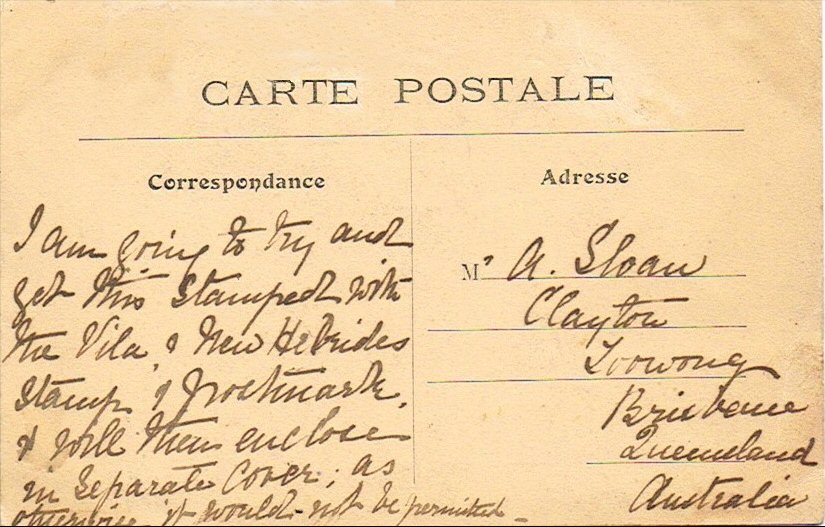 CARTE POSTALE
Correspondance
I am going to try and
get this Stamped with
the Vila, & New Hebrides
Stamp & postmark,
& will then enclose
in Separate Cover; as
otherwise it would not be permitted –
Adresse
Mr A. Sloan
Clayton
Toowong
Brisbane
Queensland
Australia